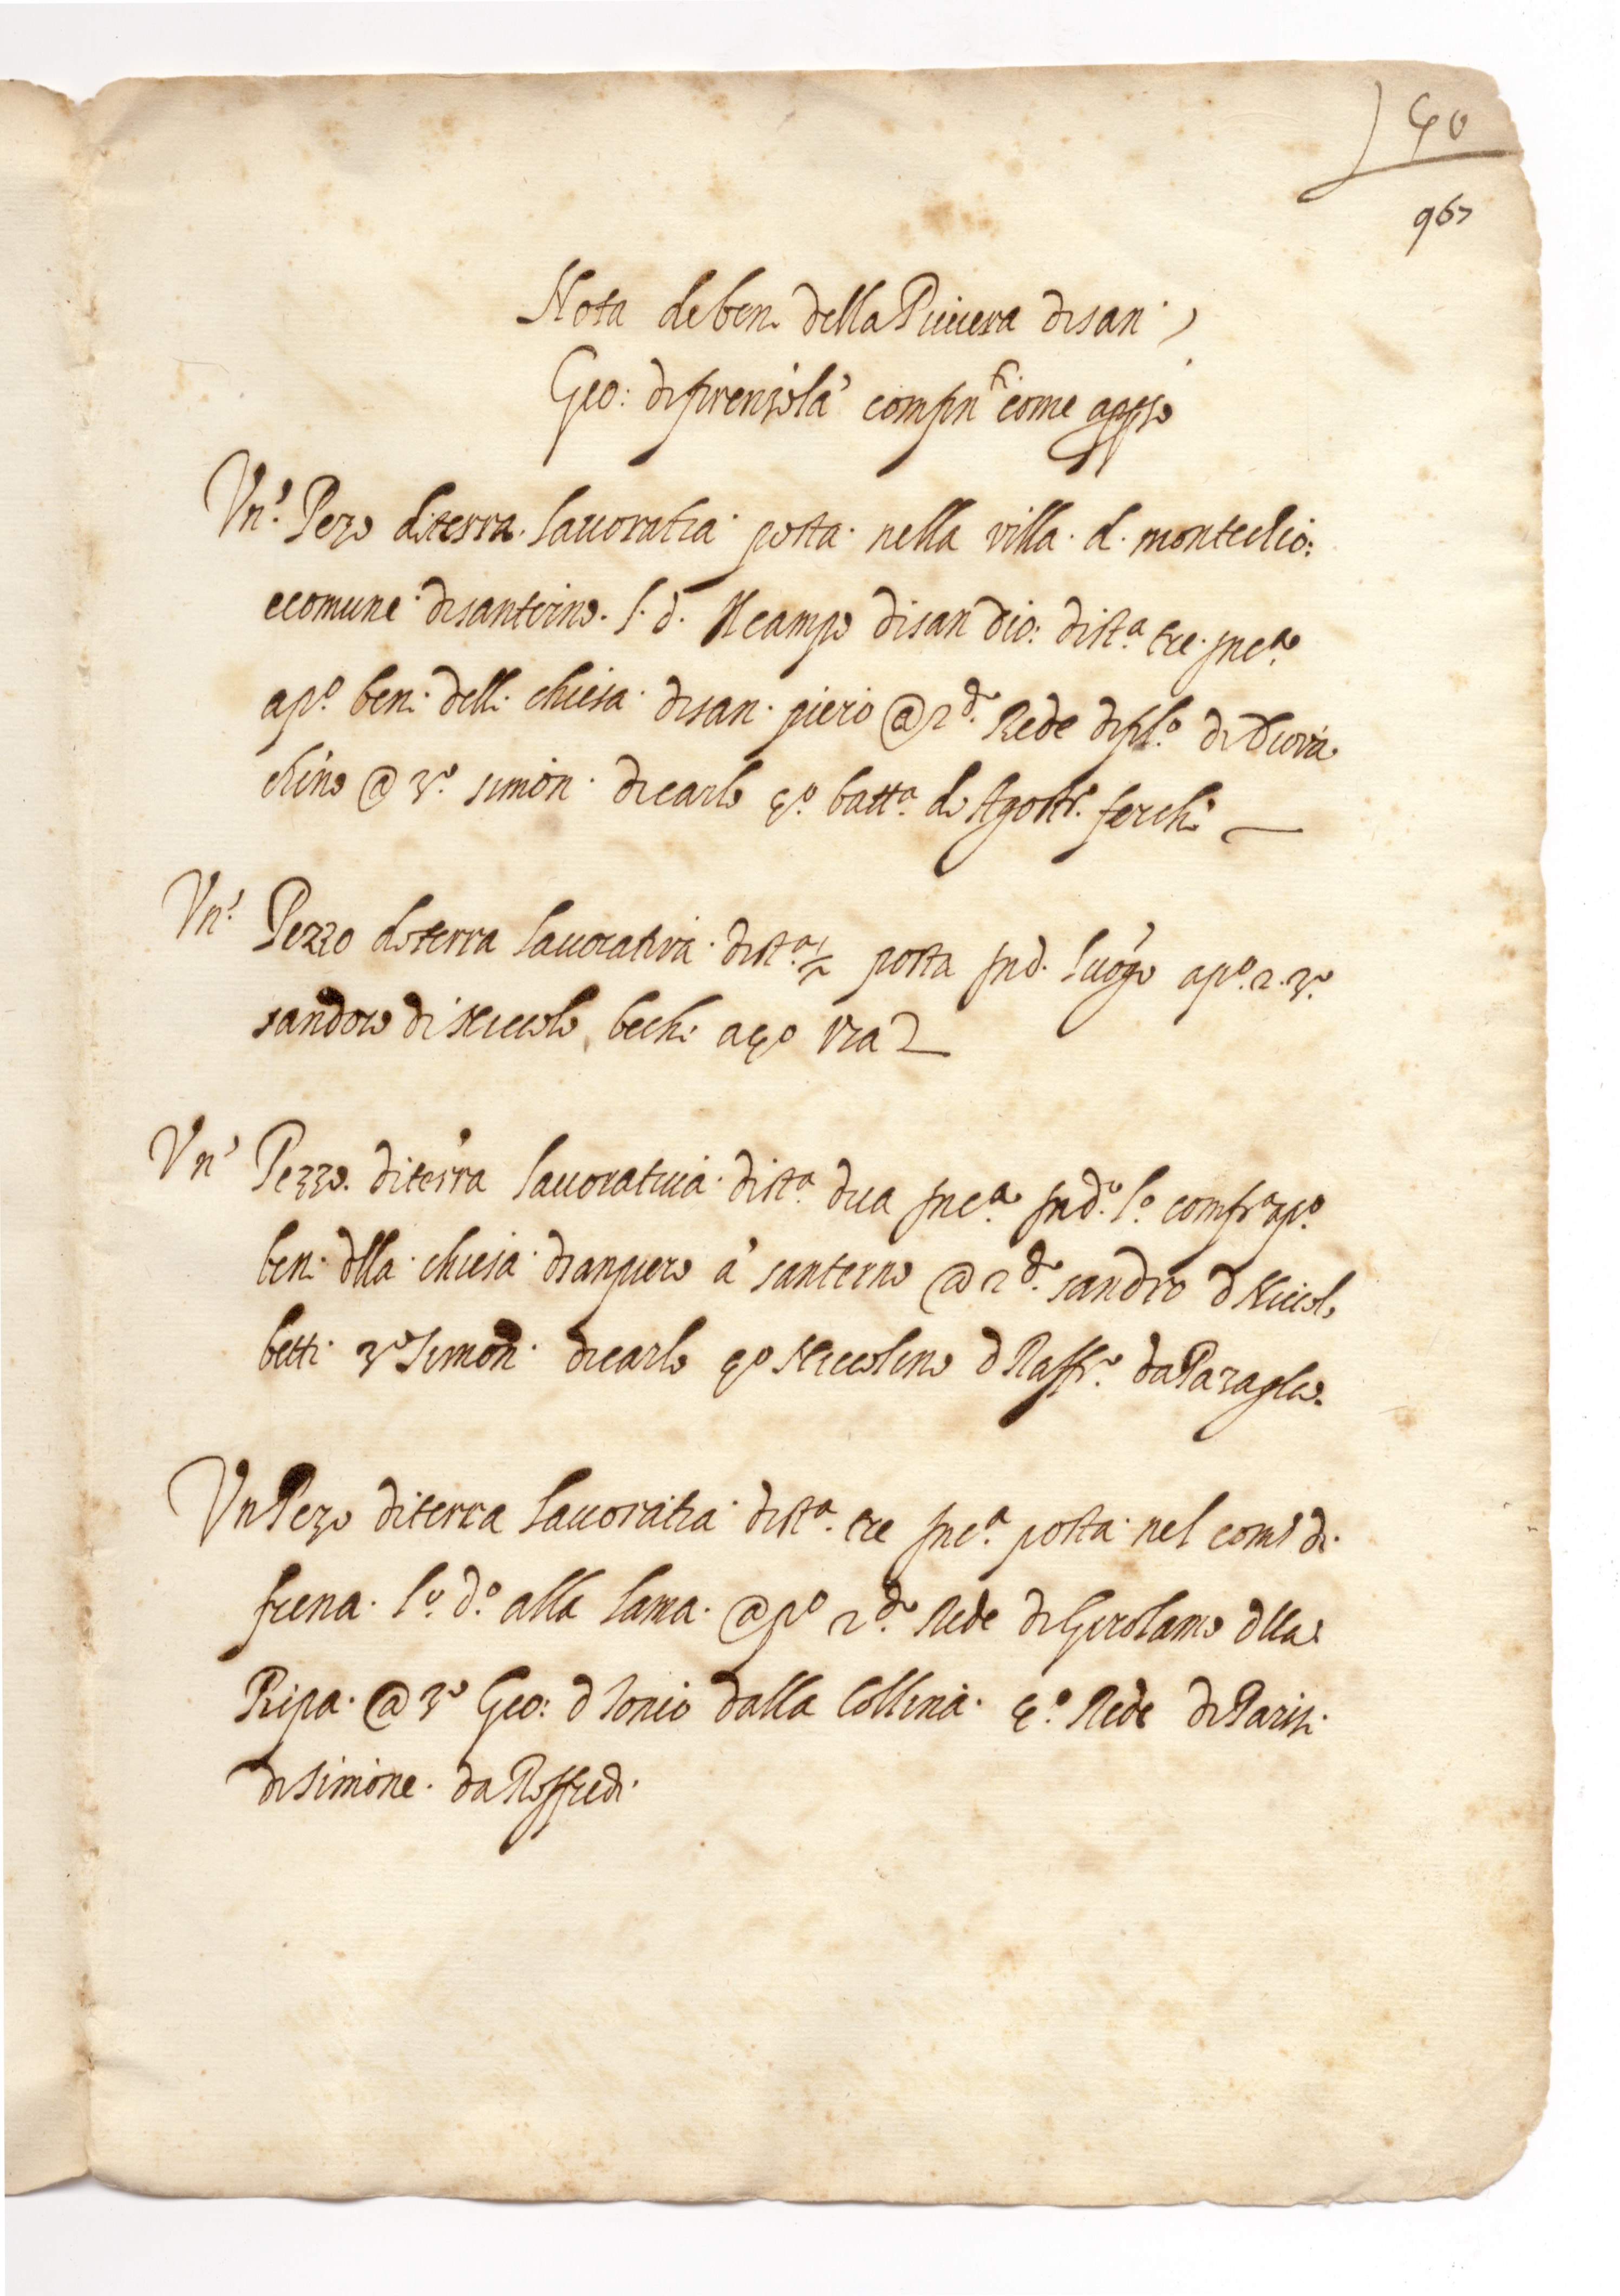 40
967
Nota de ben. della Piuiera di san
Gio: di firenzola confinti come appso
Vn. Pezo di terra. lauoratia posta nella villa. d. montecelio:
e comune di santerno. l. d. Il campo di san Gio: di sta. tre. inca.
apo. ben. dell. chiesa di san. piero @ 2do. Rede di
chino @ 3o. simon. di carlo 4o. batta. di Agosto. ferchi
Vn. Pezzo di terra lauoratiua. di sta. 1/2 posta in d. luogo apo. 2. 3o.
sandro di niccolo bechi a 4o via
Vn Pezzo. di terra lauoratiua. di sta. dua inca. in do. lo. confa apo.
ben. dlla. chiesa di san piero a santerno @ 2do. sandro d Niccolo
betti. 3o simon. di carlo 4o Niccolino d Raffo.
Vn Pezo di terra lauoratia di sta. tre inca. posta nel com di.
frena. lo. do. alla lama. @ po 2do. rede di Girolamo dlla
Ripa. @ 3o Gio: d Tonio dalla Collina. 4o. Rede di Parisi.
di simone. da Roffredi.